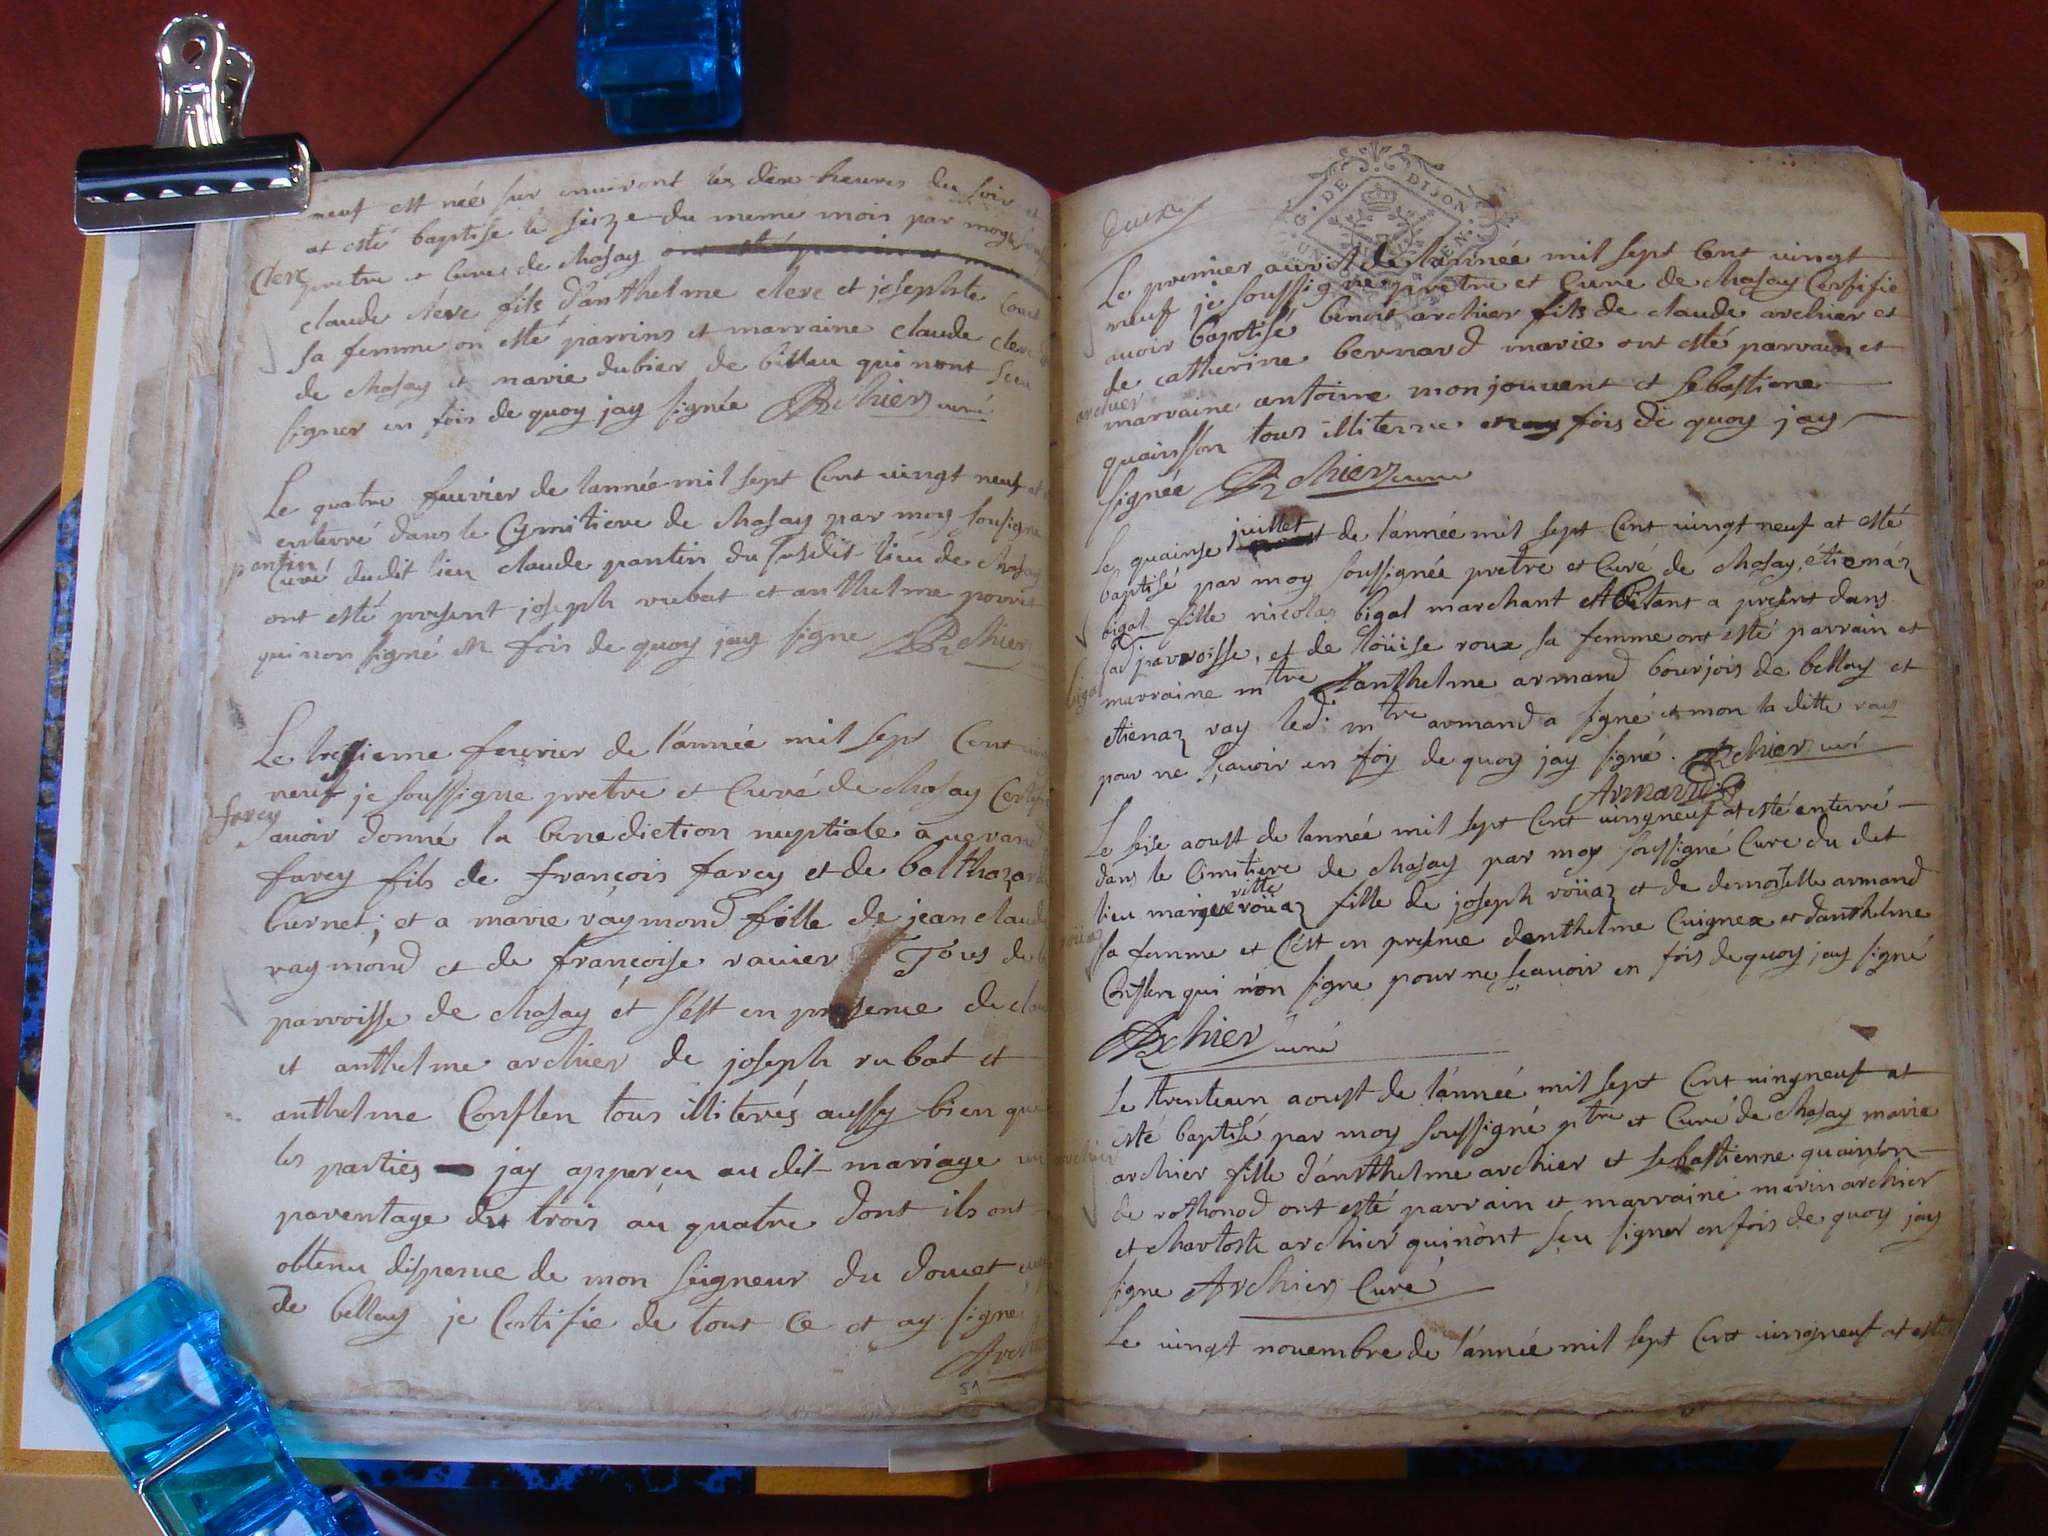 neuf est née sur enuiront les dix heures du soir et
at esté baptise le seize du meme mois par moy
Clerc
pretre et Curé de chasay
claude clerc fils d'anthelme clerc et josephte
sa femme on esté parrins et marraine claude clerc
de chasay et marie dubier de billieu qui nont sceu
signer en fois de quoy jay signée Archier curé
Le quatre feuvrier de lannée mil sept Cent uingt neuf at
enterré dans le Cymitiere de chasay par moy sousigne
pantin
Curé dudit lieu claude pantin du susdit lieu de chasay
ont esté present joseph rubat et anthelme
qui non signé en fois de quoy jay signe Archier
Le tresieme feurier de l'année mil sept Cent
neuf je soussigne pretre et Curé de chasay Certifie
farcy
auoir donné la benediction nuptiale a
farcy fils de françois farcy et de balthazarde
burnet; et a marie raymond fille de jean claude
raymond et de françoise rauier Tous de la
parroisse de chasay et s'est en presence de claude
et anthelme archier de joseph rubat et
anthelme Conflen tous illiterés aussy bien que
les parties jay apperçu au dit mariage un
parentage du trois au quatre dont ils ont
obtenu dispence de mon seigneur du douet
de bellay je Certifie de tout Ce et ay signé
Archier
51
deux
G. DE DIJON
Le premier auril de lannée mil sept Cent uingt
neuf je soussigne pretre et Cure de chasay Certifie
auoir baptisé benoit archier fils de claude archier et
de catherine bernard marie ont esté parrain et
archier
marraine antoine monjouuent et sebastiane
quainsson tous illiterre fois de quoy jay
signée Archier curé
Le quainse juillet de l'année mil sept Cent uingt neuf at esté
baptisé par moy soussignée pretre et Curé de chasay, étienaz
bigal fille nicolas bigal marchant abitant a present dans
lad parroisse, et de loüise roux sa femme ont esté parrain et
bigal
marraine mtre anthelme armand bourjois de bellay et
etienaz ray led: mtre armand a signé et mon la ditte ray
pour ne sçauoir en foy de quoy jay signé. Archier curé
Armand
Le seise aoust de lannée mil sept Cent uingneuf at esté enterré
dans le Cimitiere de chasay par moy soussigné Cure du dit
ritte
lieu marguerouaz fille de joseph roüaz et de demoiselle armand
roüaz
sa femme et C'est en presence danthelme Cuignex et danthelme
Conflen qui non signe pour ne sçauoir en fois de quoy jay signé
Archier curé
Le trenteun aoust de l'année mil sept Cent uingneuf at
esté baptisé par moy soussigné ptre et Curé de chasay marie
archier
archier fille d'anthelme archier et sebastienne quainson
de rothonod ont esté parrain et marraine marin archier
et archier qui nont sçu signer en fois de quoy jay
signe Archier Curé
Le uingt nouembre de l'année mil sept Cent uingneuf at esté